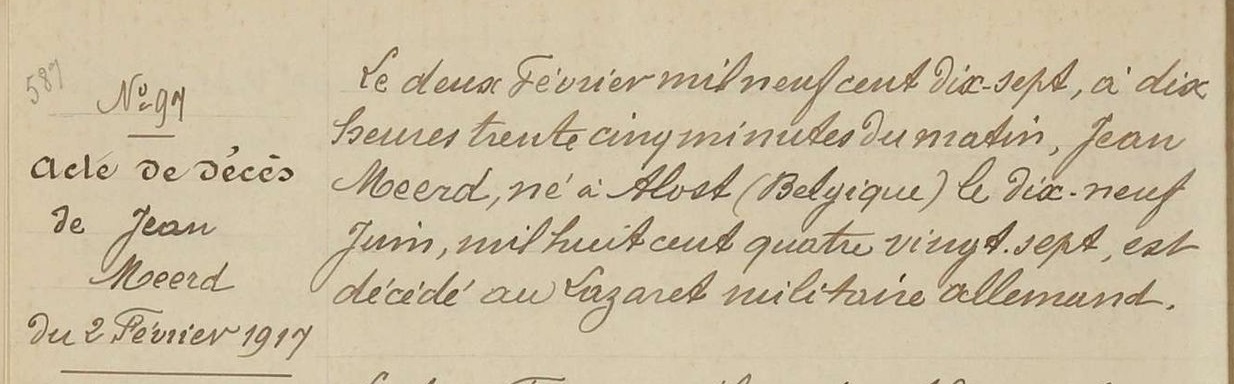 587
Nº 97
Acte de décès
de Jean
Meerd
du 2 Février 1917
Le deux Février mil neuf cent dix-sept, à dix
heures trente cinq minutes du matin, Jean
Meerd, né à Alost (Belgique) le dix-neuf
Juin, mil huit cent quatre vingt-sept, est
décédé au Lazaret militaire allemand.